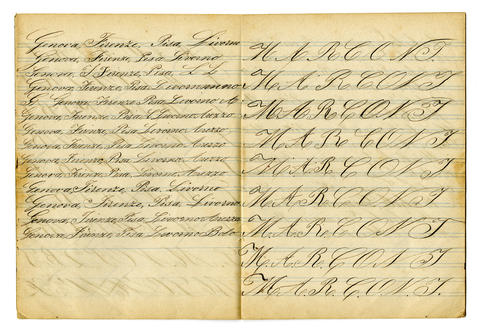 Genova, Firenze, Pisa, Livorno
Genova, Firenze, Pisa Livorno
Genova, Firenze, Pisa, L L
Genova Firenze, Pisa Livorno
Genova Firenze Pisa Livorno A
Genova, Firenze, Pisa Livorno, Arezzo
Genova, Firenze, Pisa, Livorno, Arezzo
Genova, Firenze, Pisa, Livorno Arezzo
Genova, Firenze, Pisa, Livorno, Arezzo
Genova, Firenze, Pisa, Livorno, Arezzo
Genova Firenze, Pisa, Livorno
Genova, Firenze, Pisa, Livorno
Genova, Firenze, Pisa Livorno Arezzo
Genova, Firenze, Pisa Livorno Bolo
M A R C O N I.
M A R C O N I
M A R C O N I
M A R C O N I
M A R C O N I.
M A R C O N I.
M. A. R. C. O N I
M. A. R. C. O N I
M. A. R. C. O. N. I.